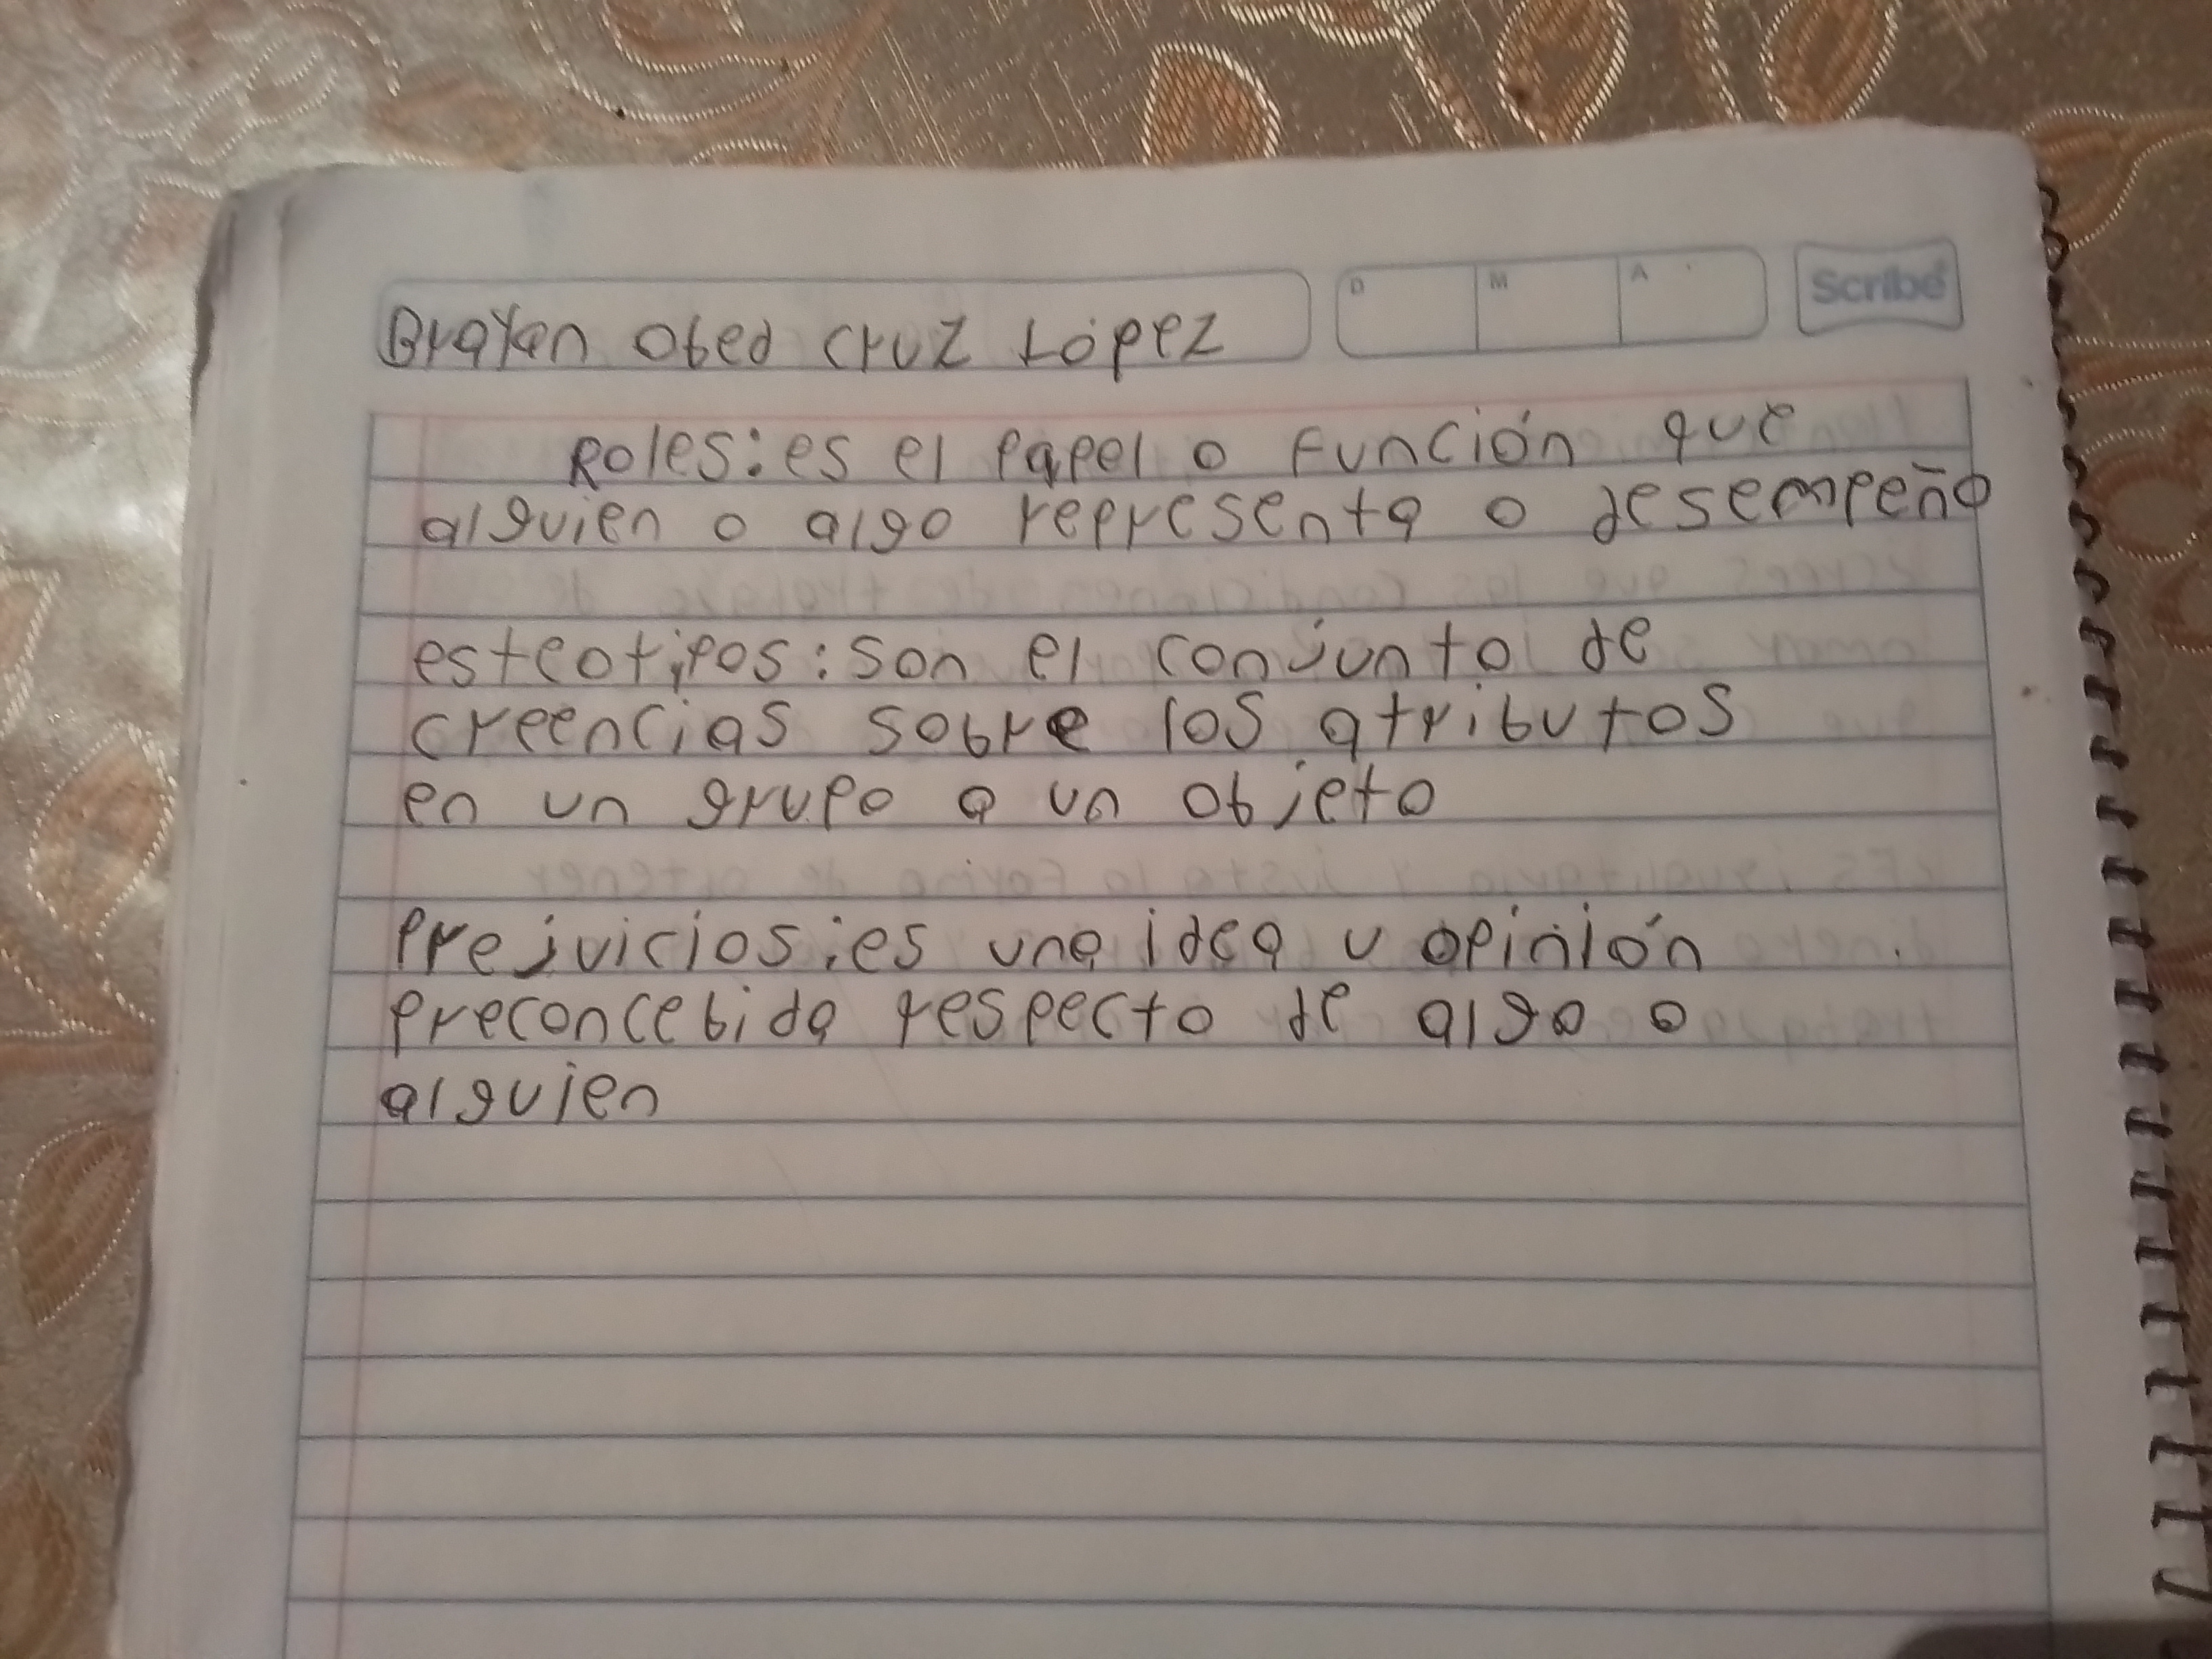 D M A Scribe
Brayan Obed Cruz López
Roles: es el papel o función que
alguien o algo representa o desempeño
esteotipos: son el conjunto de
creencias sobre los atributos
en un grupo a un objeto
Prejuicios: es una idea u opinión
preconcebida respecto de algo o
alguien